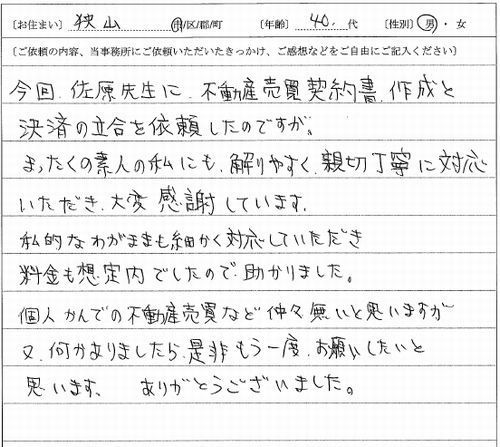 [お住まい] 狭山 市/区/郡/町 [年齢] 40. 代 [性別] 男・女
[ご依頼の内容、当事務所にご依頼いただいたきっかけ、ご感想などをご自由にご記入ください]
今回、佐原先生に、不動産売買契約書、作成と
決済の立合を依頼したのですが。
まったくの素人の私にも、解りやすく、親切丁寧に対応
いただき、大変感謝しています。
私的なわがままも細かく対応していただき
料金も想定内でしたので、助かりました。
個人かんでの不動産売買など仲々無いと思いますが
又、何かありましたら、是非もう一度、お願いしたいと
思います、 ありがとうございました。